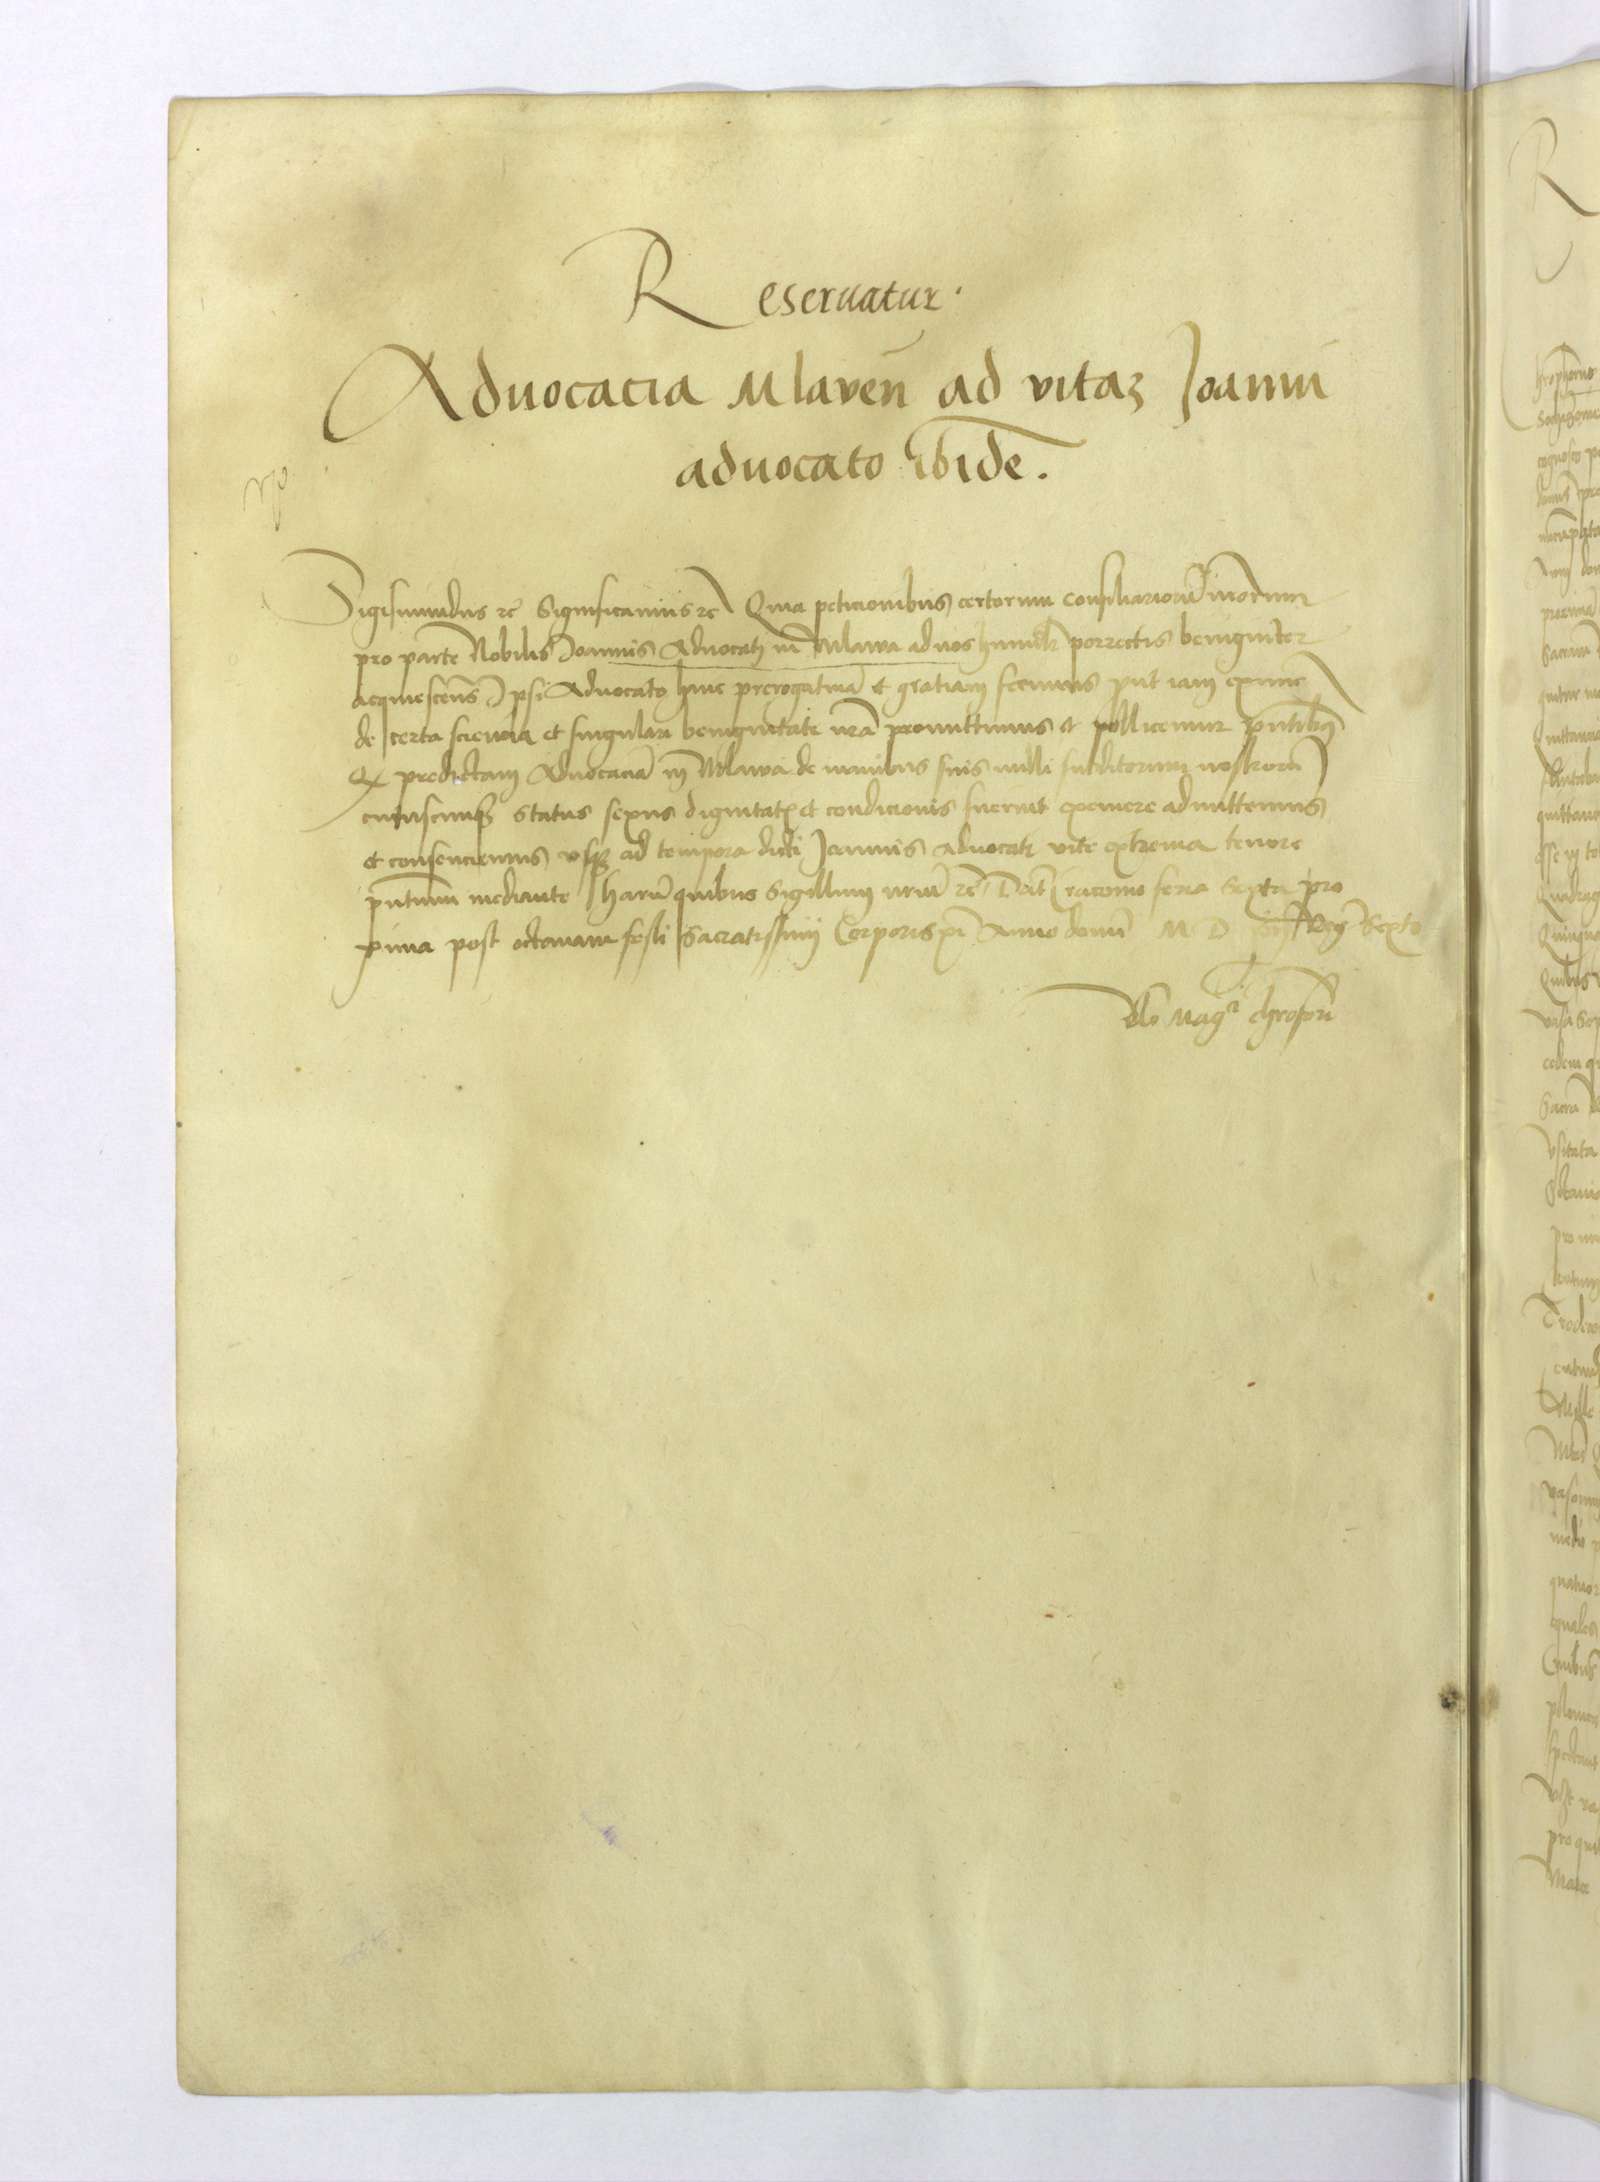 Reseruatur.
Aduocacia Mlaven̄ ad vitaȝ Joanni
aduocato ibidē.
Sigismundus rc̄ Significamus rc̄ Quia peticionibus certorum consiliariorū nr̄orum
pro parte Nobilis Joannis Aduocati in Mlawa ad nos humilr̄ porrectis benigniter
acquiescens Ipsi Aduocato hanc prerogatiuā et gratiam fecimus put iam exnunc
de certa sciencia et singulari benignitate nr̄a promittimus et pollicemur pn̄tibus
Q predictam Aduocaciā in Mlawa de manibus suis nulli subditorum nostrorū
cuiuscunqȝ status sexus dignitatis et condicionis fuerint eximere admittemus
et consenciemus vsqȝ ad tempora dicti Joannis aduocati vite extrema tenore
pn̄tium mediante harū quibus Sigillum nr̄um rc̄ Dat̄ Cracouie feria Sexta pro
xima post octauam festi Sacratissimi Corporis xp̄i Anno domī M D Reg Sexto